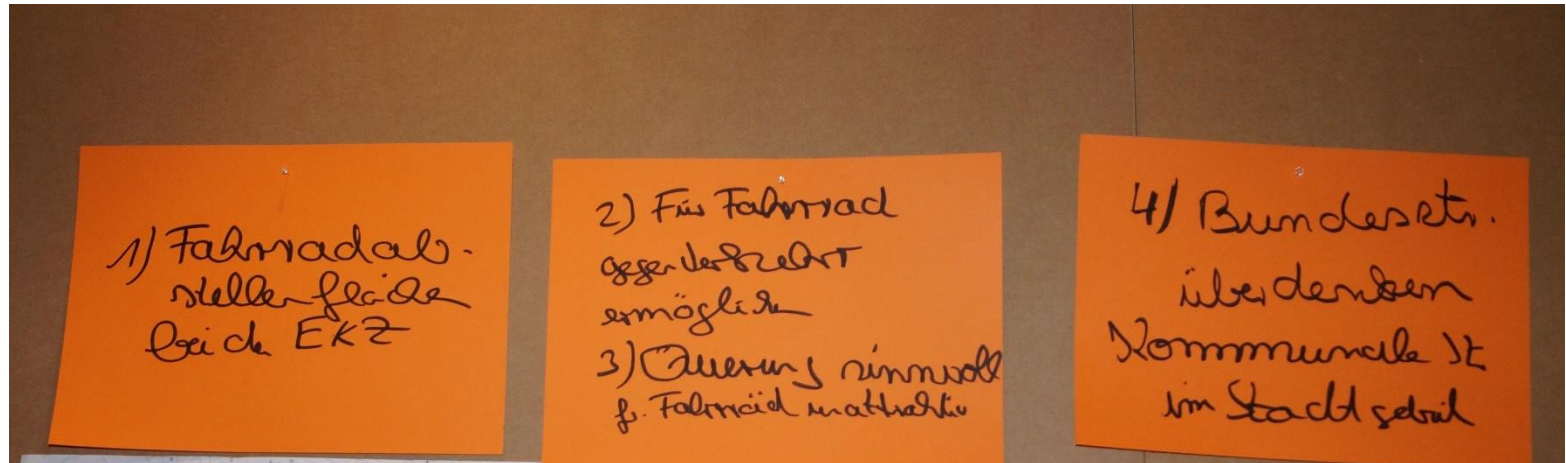 1) Fahrradab-
stellerfläche
bei de EKZ
2) Für Fahrrad
gegenverkehrt
ermöglich
3) Querung sinnvoll
f. Fahrräd unattraktiv
4) Bundesstr.
überdenken
Kommunale St
im Stadtgebiet